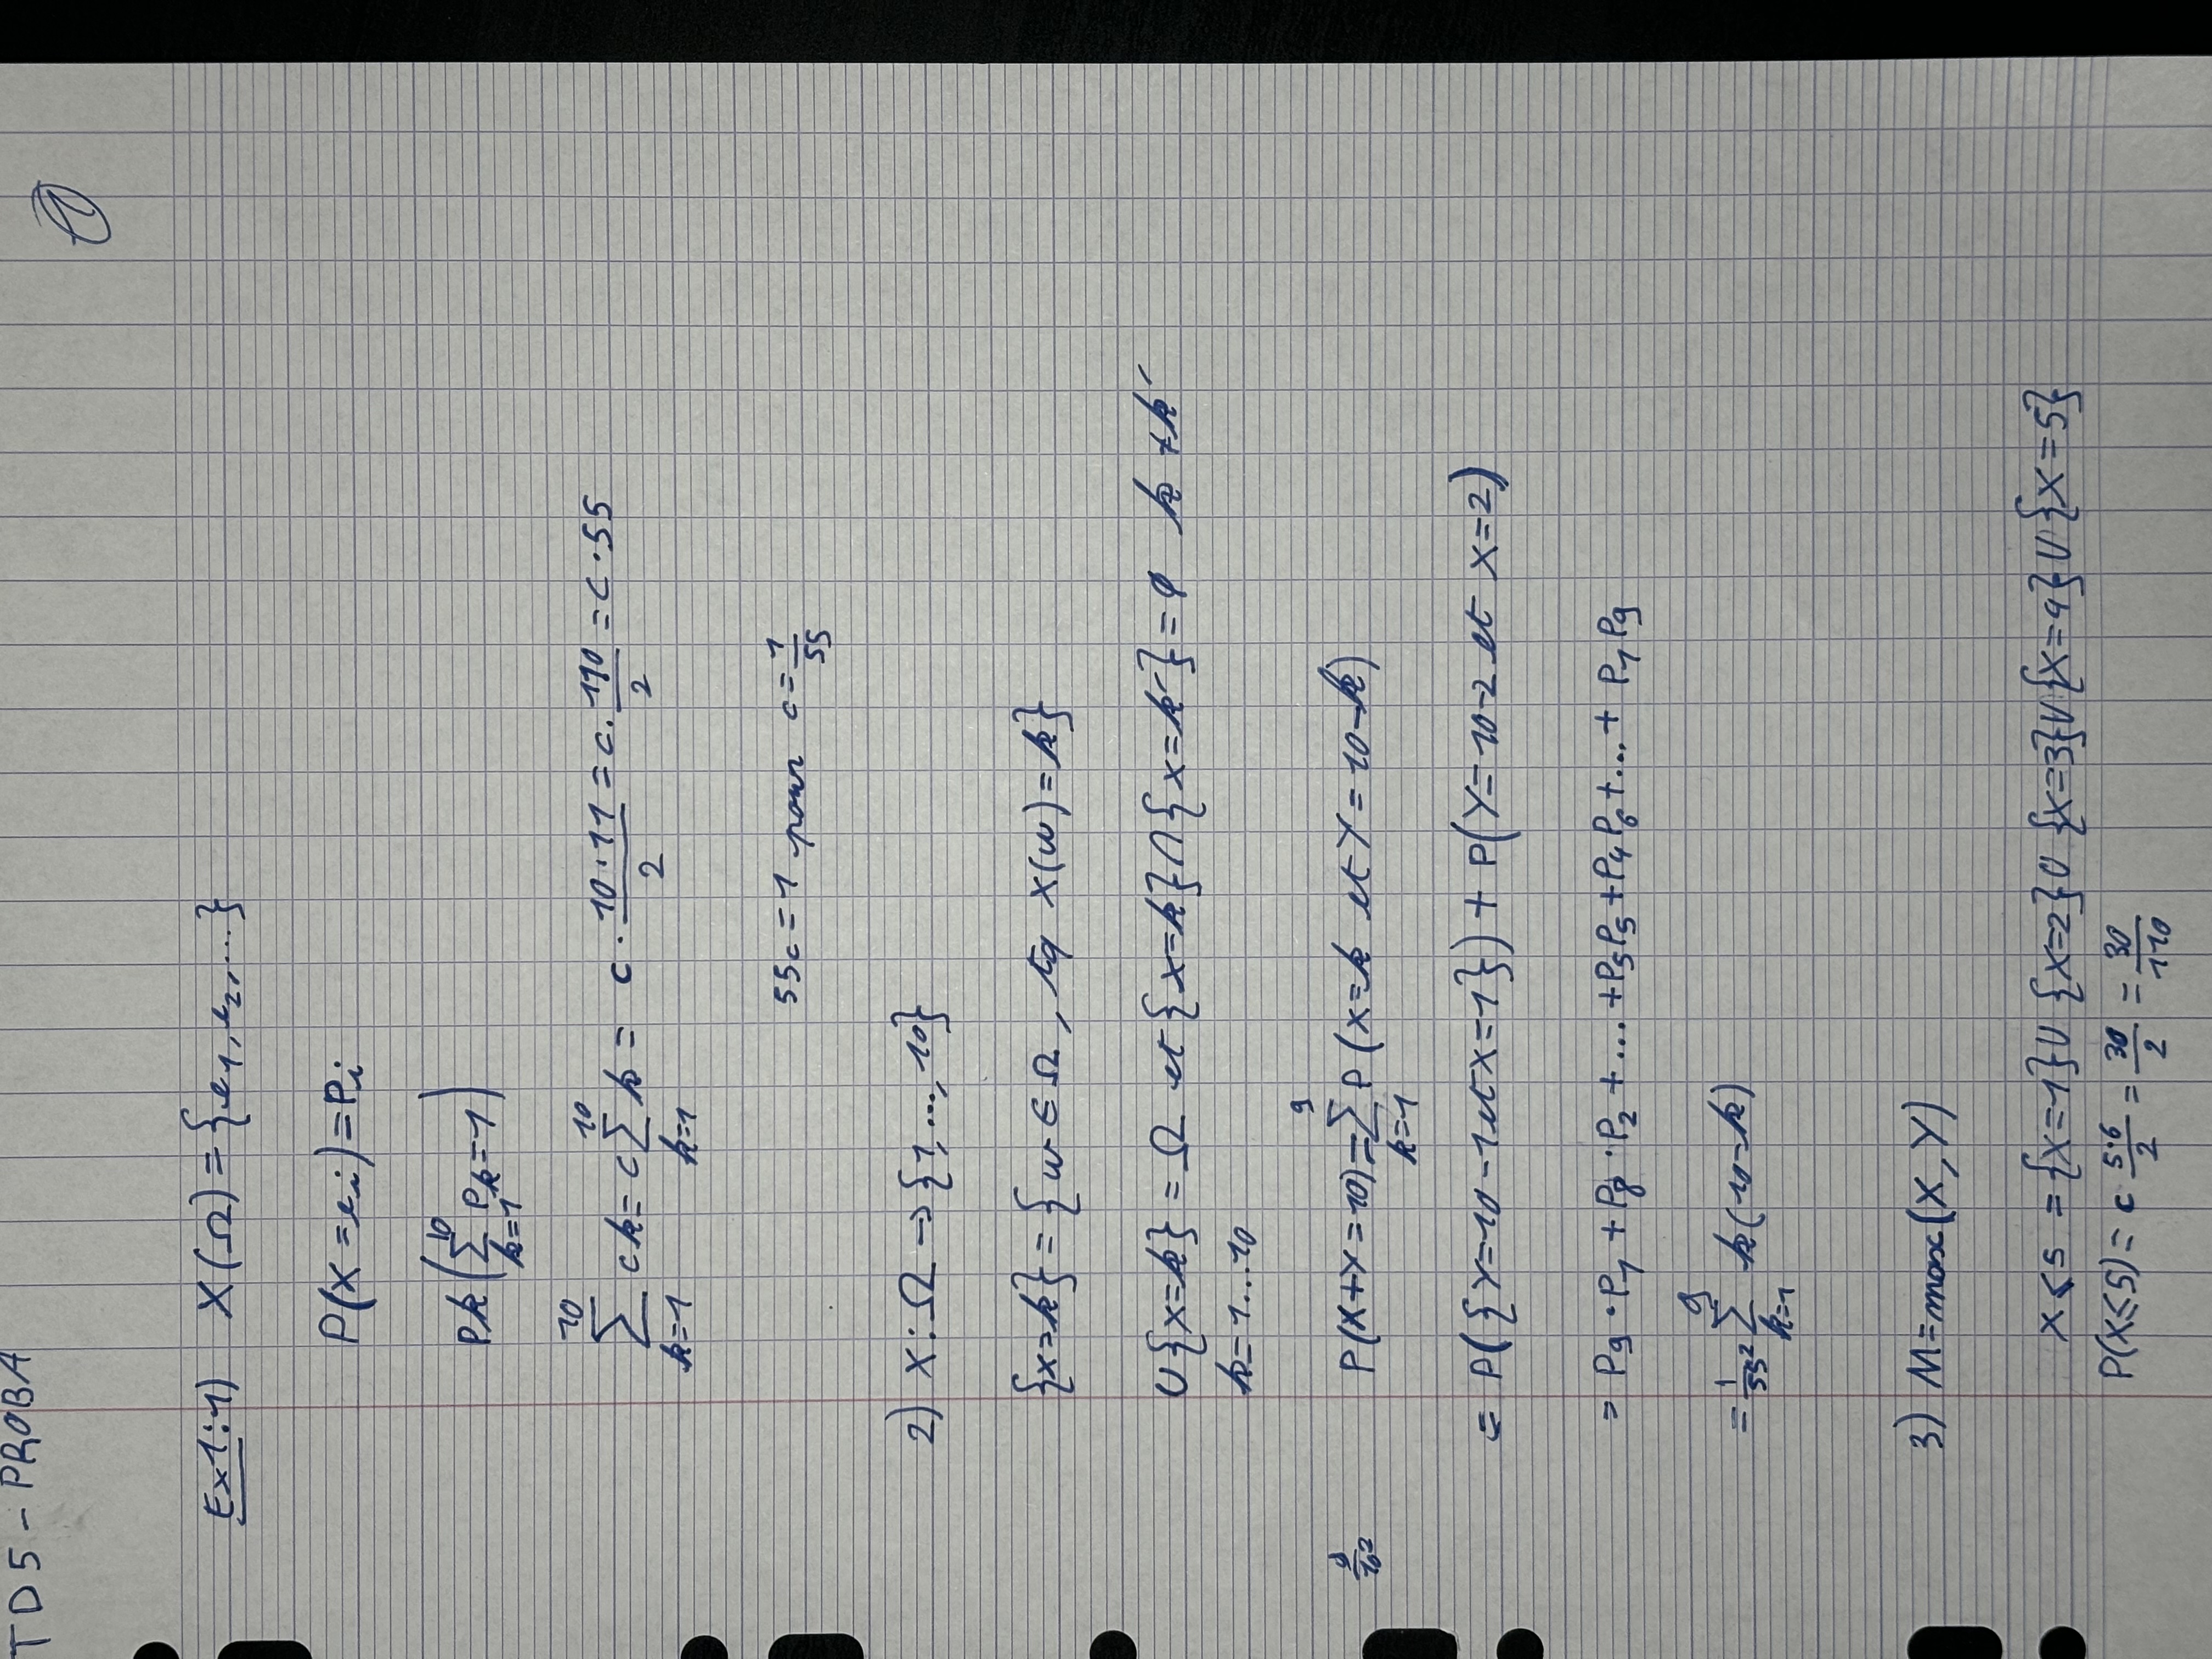 TD5 - PROBA
①
Ex1: 1) X(Ω) = {e₁, e₂, ...}
P(X = eᵢ) = Pᵢ
Pk (∑_{k=1}^{10} P_k = 1)
∑_{k=1}^{10} ck = c ∑_{k=1}^{10} k = c · (10·11)/2 = c · 110/2 = c · 55
55c = 1 pour c = 1/55
2) X : Ω → {1, ..., 10}
{x = k} = {w ∈ Ω, tq X(w) = k}
∪{x = k} = Ω et {x = k} ∩ {x = k'} = ∅ k ≠ k'
k = 1...10
P(X+Y = 10) = ∑_{k=1}^{9} P(x = k et Y = 10 - k)
= P({Y = 10 - 1 et X = 1}) + P(Y = 10 - 2 et X = 2)
= P₉ · P₁ + P₈ · P₂ + ... + P₅P₅ + P₄P₆ + ... + P₁P₉
= 1/55² ∑_{k=1}^{9} k(10 - k)
3) M = max(X, Y)
X ≤ 5 = {X = 1} ∪ {X = 2} ∪ {X = 3} ∪ {X = 4} ∪ {X = 5}
P(X ≤ 5) = c (5·6)/2 = 30/2 = 30/110